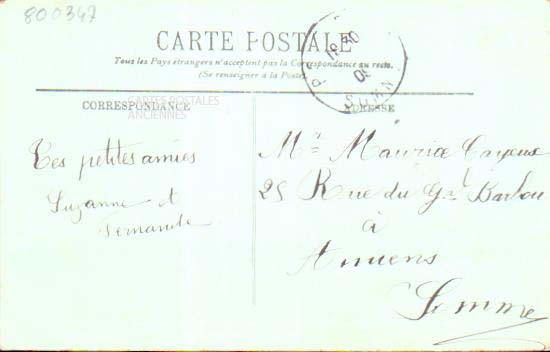 800347
CARTE POSTALE
Tous les Pays étrangers n'acceptent pas la Correspondance au recto.
(Se renseigner à la Poste)
CORRESPONDANCE
CARTES POSTALES
ANCIENNES
ADRESSE
Tes petites amies
Suzanne et
Fernande
Maurice Cayeux
25 Rue du Gd Barbou
à
Amiens
Somme